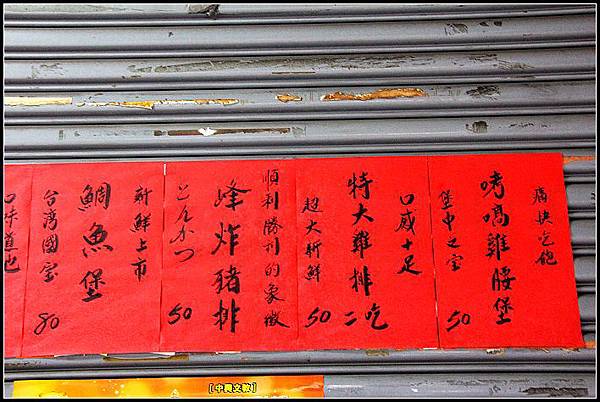 痛快吃飽
烤嗎雞腿堡
堡中之宝
50
口感十足
特大雞排
吃二
超大新鮮
50
順利勝利的象徵
炸豬排
とんかつ
50
新鮮上市
鯛魚堡
台湾國宝
80
口味道地
【中興文教】